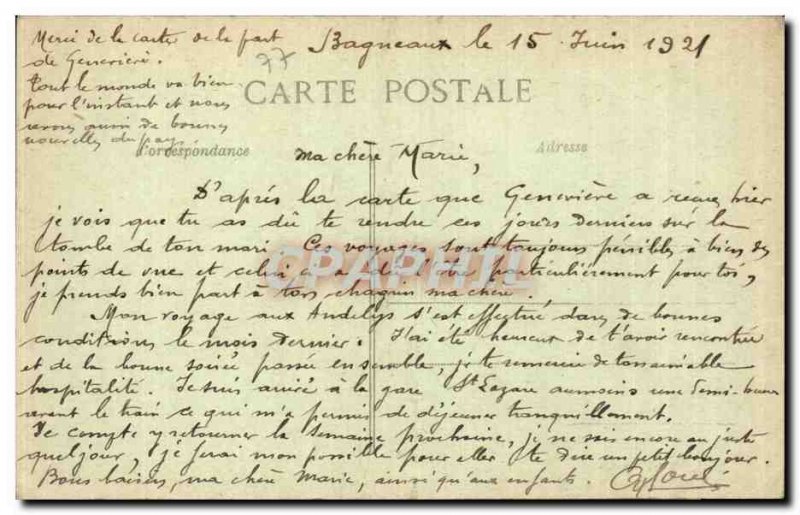 Merci de la carte de la part
de Geneviève.
Tout le monde va bien
pour l'instant et nous
avons aussi de bonnes
nouvelles du pays.
77
Bagneaux le 15 Juin 1921
CARTE POSTALE
Correspondance
Adresse
Ma chère Marie,
D'après la carte que Geneviève a reçue hier
je vois que tu as dû te rendre ces jours derniers sur la
tombe de ton mari. Ces voyages sont toujours pénibles à bien des
points de vue et celui ça a dû l'être particulièrement pour toi,
je prends bien part à ton chagrin ma chère.
CPAPHIL
Mon voyage aux Andelys s'est effectué dans de bonnes
conditions le mois dernier. J'ai été heureux de t'avoir rencontrée
et de la bonne soirée passée ensemble, je te remercie de ton aimable
hospitalité. Je suis arrivé à la gare St Lazare au moins une demi-heure
avant le train ce qui m'a permis de déjeuner tranquillement.
Je compte y retourner la semaine prochaine, je ne sais encore au juste
quel jour, je ferai mon possible pour aller te dire un petit bonjour.
Bons baisers, ma chère Marie, ainsi qu'aux enfants.